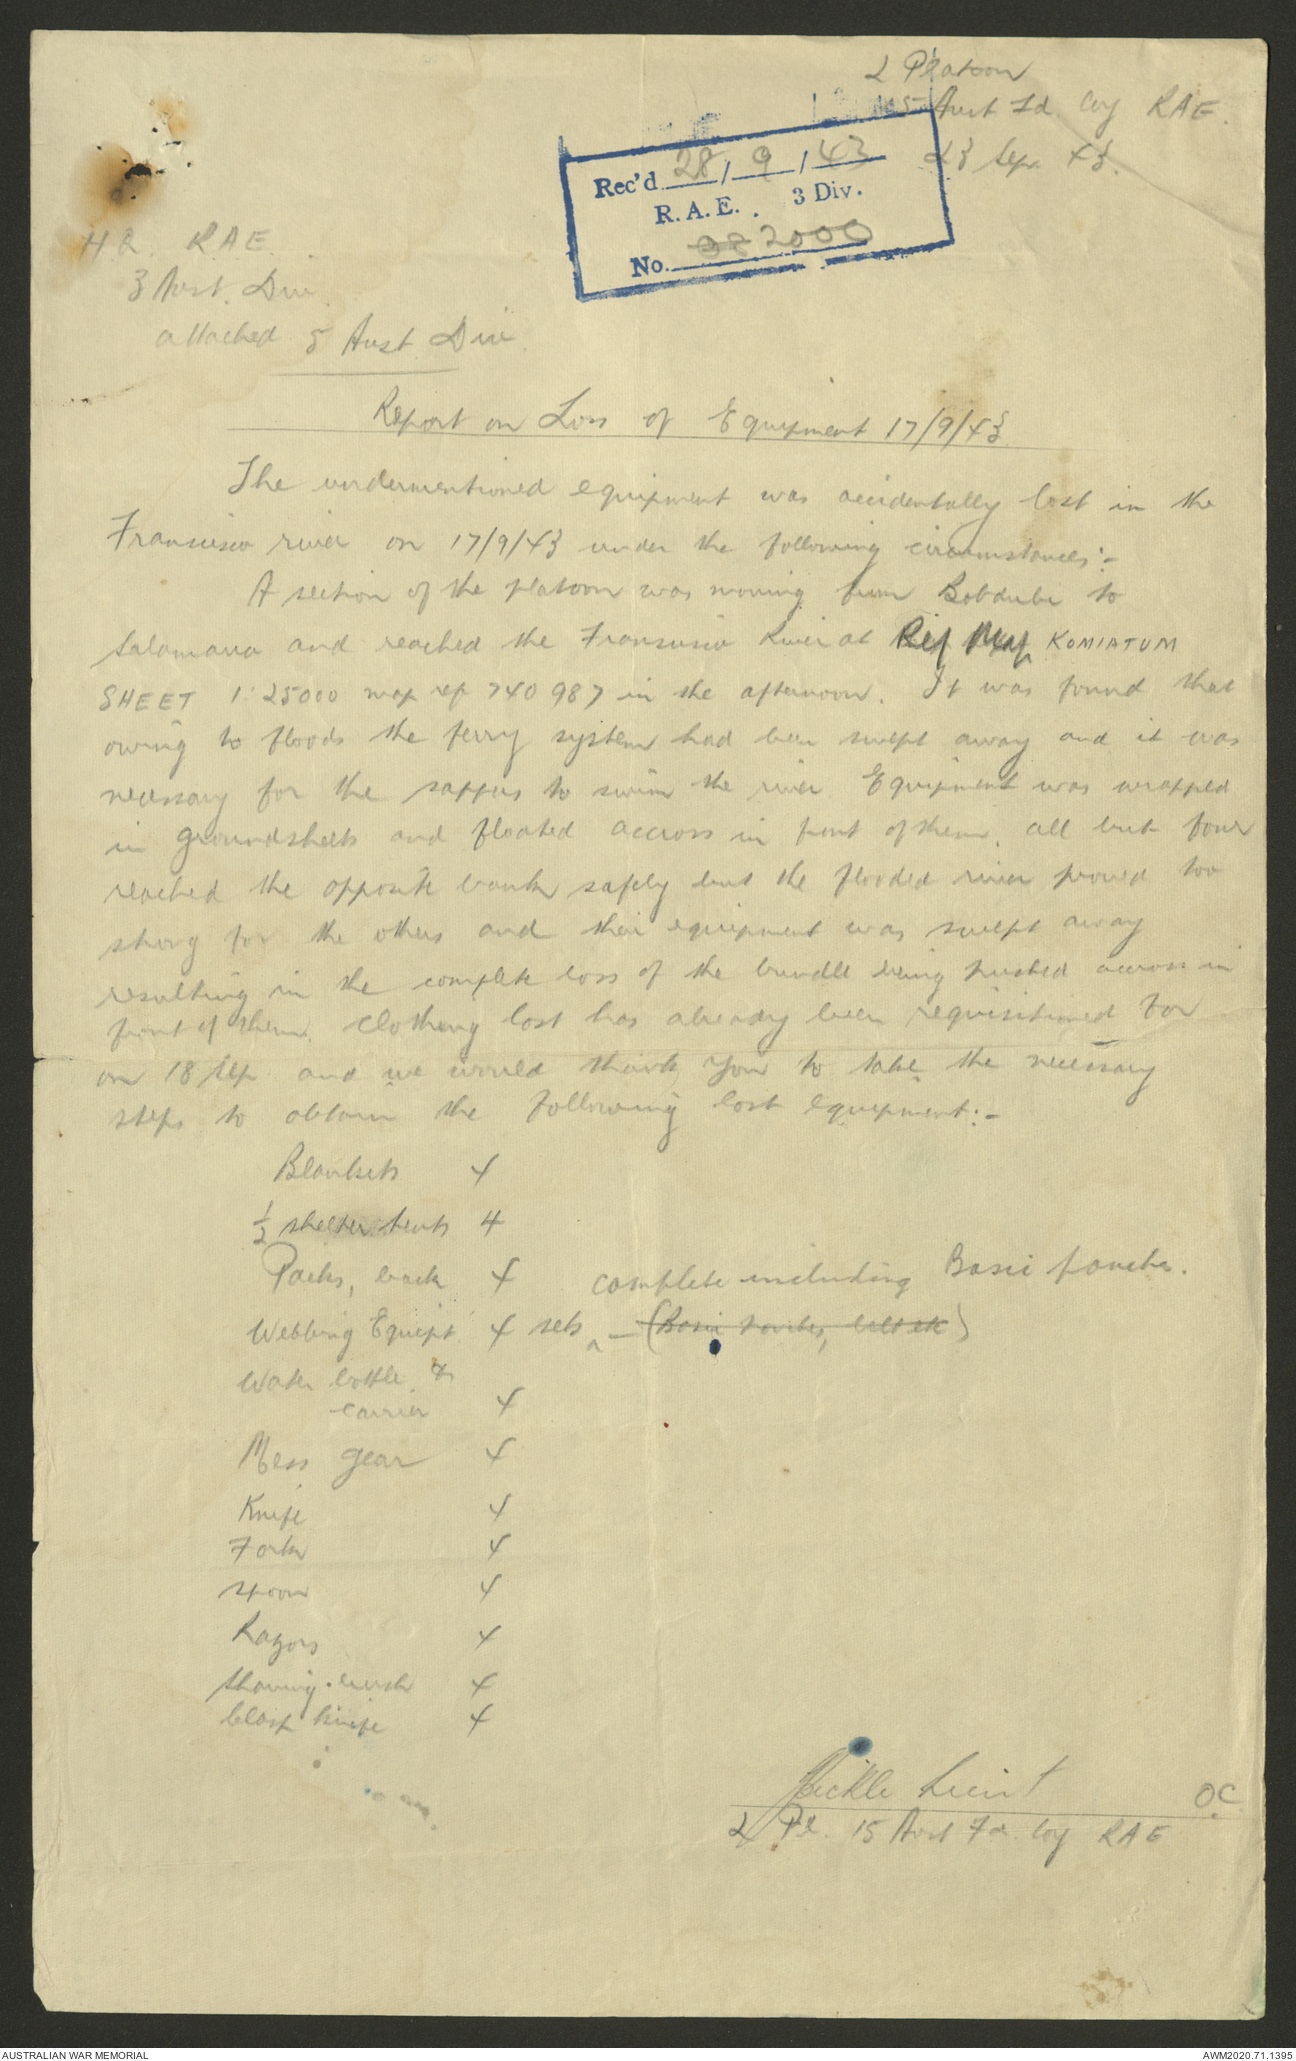 2 Platoon
15 Aust Fd. Coy RAE.
23 Sep 43.
Rec'd 28/9/43
R.A.E. 3 Div.
No. 2000
HQ. RAE
3 Aust. Div.
attached 5 Aust Div.
Report on Loss of Equipment 17/9/43
The undermentioned equipment was accidentally lost in the
Francisco river on 17/9/43 under the following circumstances:-
A section of the platoon was moving from Bobdubi to
Salamaua and reached the Francisco River at Ref Map KOMIATUM
SHEET 1:25000 map ref 740987 in the afternoon. It was found that
owing to floods the ferry system had been swept away and it was
necessary for the sappers to swim the river Equipment was wrapped
in groundsheets and floated accross in front of them. all but four
reached the opposite bank safely but the flooded river proved too
strong for the others and their equipment was swept away
resulting in the complete loss of the bundle being pushed accross in
front of them. Clothing lost has already been requisitioned for
on 18 Sep and we would thank you to take the necessary
steps to obtain the following lost equipment:-
Blankets 4
½ shelter tents 4
Packs, back 4 complete including Basic pouches.
Webbing Equipt. 4 sets ^ — (Basic pouches, belt etc)
Water bottle &
carrier 4
Mess gear 4
Knife 4
Fork 4
Spoon 4
Razors 4
Shaving-brush 4
Clasp knife 4
Lieut
OC
2 Pl. 15 Aust Fd. Coy RAE
AUSTRALIAN WAR MEMORIAL
AWM2020.71.1395